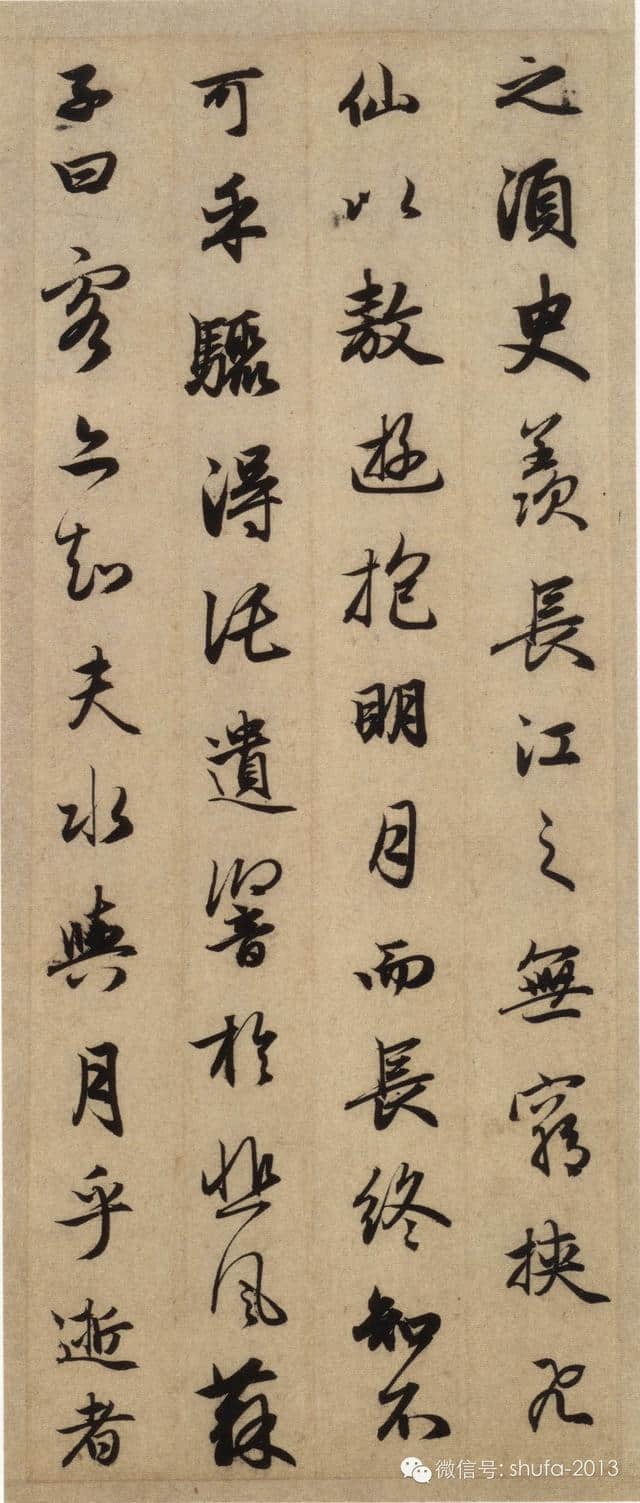 之須臾羨長江之無窮挾飛
仙以敖遊抱明月而長終知不
可乎驟得託遺響於悲風蘇
子曰客亦知夫水與月乎逝者
微信号: shufa-2013